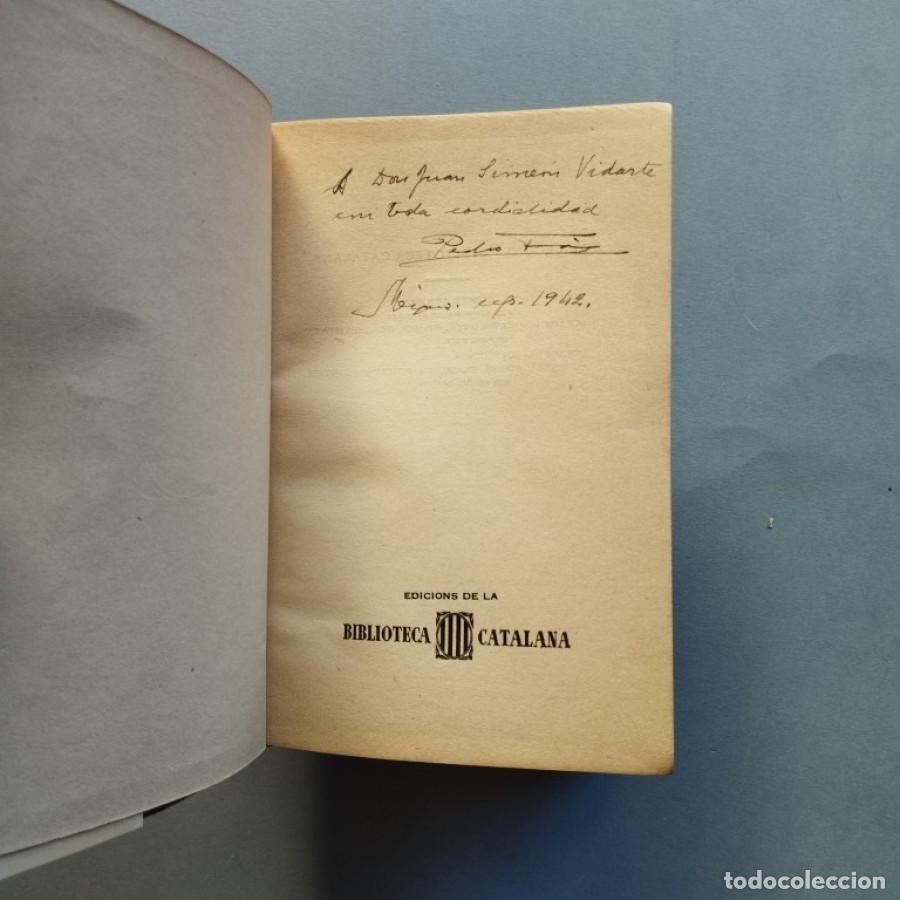 A Don Juan Simeón Vidarte
con toda cordialidad
Pedro
1942.
EDICIONS DE LA
BIBLIOTECA CATALANA
todocoleccion